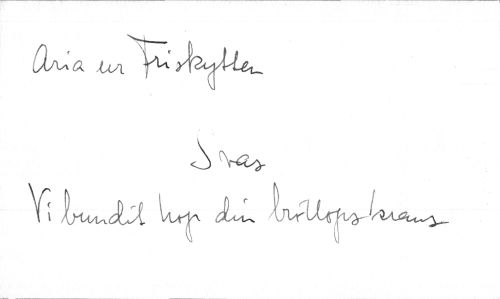 Aria ur Friskytten
Svas
Vi bundit hop din bröllopskrans